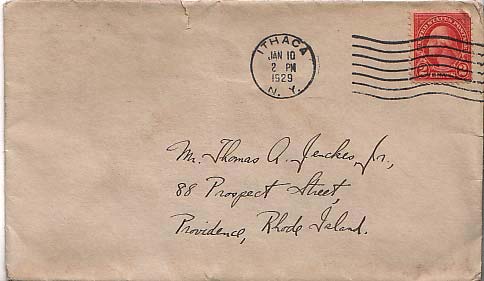 ITHACA
JAN 10
2 PM
1929
N. Y.
UNITED STATES POSTAGE
2 2
Mr. Thomas A. Jenckes, Jr.,
88 Prospect Street,
Providence, Rhode Island.